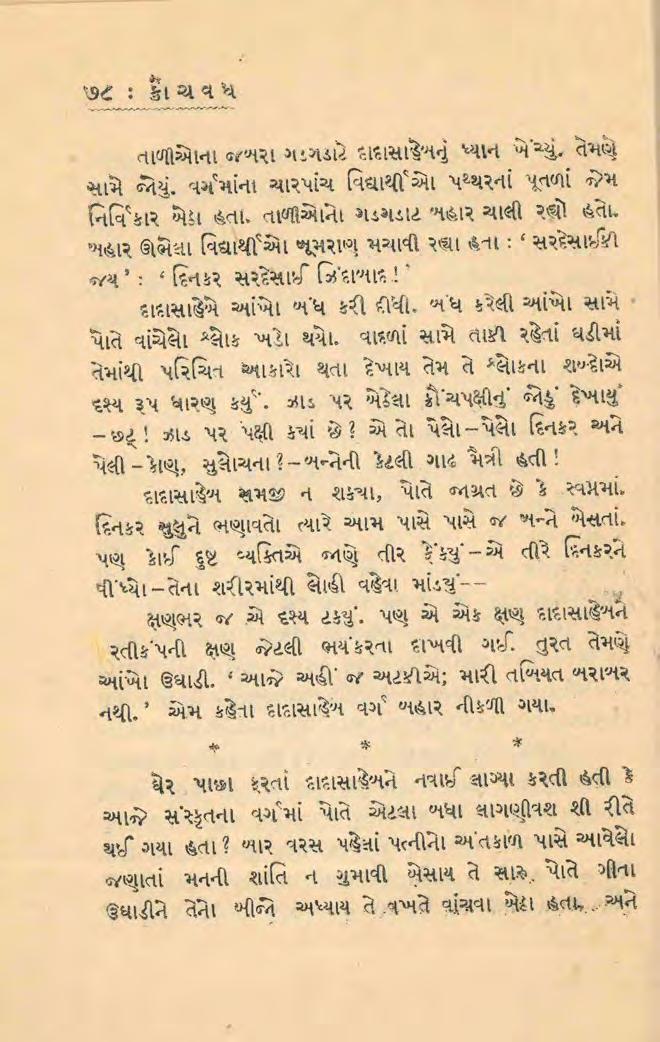 ૭૮ : ક્રૌંચવધ
તાળીઓના જબરા ગડગડાટે દાદાસાહેબનું ધ્યાન ખેંચ્યું. તેમણે
સામે જોયું. વર્ગમાંના ચારપાંચ વિદ્યાર્થીઓ પથ્થરનાં પૂતળાં જેમ
નિર્વિકાર બેઠા હતા. તાળીઓનો ગડગડાટ બહાર ચાલી રહ્યો હતો.
બહાર ઊભેલા વિદ્યાર્થીઓ બૂમરાણ મચાવી રહ્યા હતા : ‘ સરદેસાઈકી
જય ’ : ‘ દિનકર સરદેસાઈ ઝિંદાબાદ ! ’
દાદાસાહેબે આંખો બંધ કરી દીધી. બંધ કરેલી આંખો સામે
પોતે વાંચેલો શ્લોક ખડો થયો. વાદળાં સામે તાકી રહેતાં ઘડીમાં
તેમાંથી પરિચિત આકારો થતા દેખાય તેમ તે શ્લોકના શબ્દોએ
દશ્ય રૂપ ધારણ કર્યું. ઝાડ પર બેઠેલા ક્રૌંચપક્ષીનું જોડું દેખાયું
–છટ્ ! ઝાડ પર પક્ષી ક્યાં છે ? એ તો પેલો–પેલો દિનકર અને
પેલી–કોણ, સુલોચના ?–બન્નેની કેટલી ગાઢ મૈત્રી હતી !
દાદાસાહેબ સમજી ન શક્યા, પોતે જાગ્રત છે કે સ્વપ્નમાં.
દિનકર સુલુને ભણાવતો ત્યારે આમ પાસે પાસે જ બન્ને બેસતાં.
પણ કોઈ દુષ્ટ વ્યક્તિએ જાણે તીર ફેંક્યું–એ તીરે દિનકરને
વીંધ્યો–તેના શરીરમાંથી લોહી વહેવા માંડ્યું--
ક્ષણભર જ એ દશ્ય ટક્યું. પણ એ એક ક્ષણ દાદાસાહેબને
રતીકંપની ક્ષણ જેટલી ભયંકરતા દાખવી ગઈ. તુરત તેમણે
આંખો ઉઘાડી. ‘ આજે અહીં જ અટકીએ; મારી તબિયત બરાબર
નથી. ’ એમ કહેતા દાદાસાહેબ વર્ગ બહાર નીકળી ગયા.
* * *
ઘેર પાછા ફરતાં દાદાસાહેબને નવાઈ લાગ્યા કરતી હતી કે
આજે સંસ્કૃતના વર્ગમાં પોતે એટલા બધા લાગણીવશ શી રીતે
થઈ ગયા હતા ? બાર વરસ પહેલાં પત્નીનો અંતકાળ પાસે આવેલો
જણાતાં મનની શાંતિ ન ગુમાવી બેસાય તે સારુ પોતે ગીતા
ઉઘાડીને તેનો બીજો અધ્યાય તે વખતે વાંચવા બેઠા હતા. અને